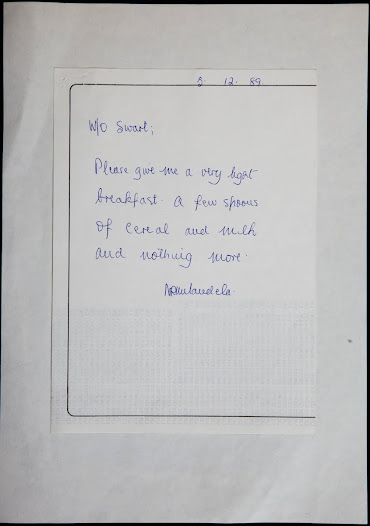 5. 12. 89.
W/O Swart;
Please give me a very light
breakfast. A few spoons
of cereal and milk
and nothing more.
NRMandela.